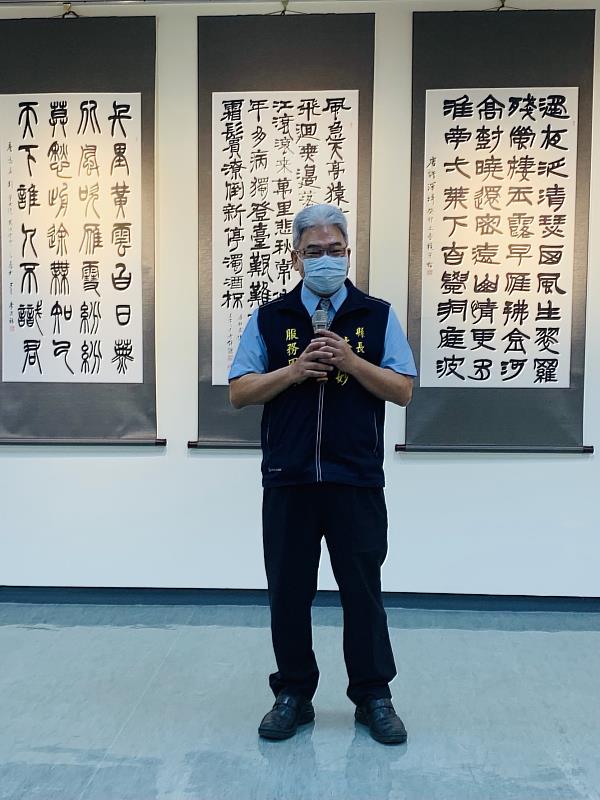 遙夜泛清瑟西風生翠蘿
殘螢棲玉露早雁拂金河
高樹曉還密遠山晴更多
淮南一葉下自覺洞庭波
唐許渾詩
風急天高猿
飛迴無邊落
江滾滾來萬里悲秋常
年多病獨登臺艱難
霜鬢潦倒新停濁酒杯
千里黃雲白日曛
北風吹雁雪紛紛
莫愁前途無知己
天下誰人不識君
縣長
妙
服務